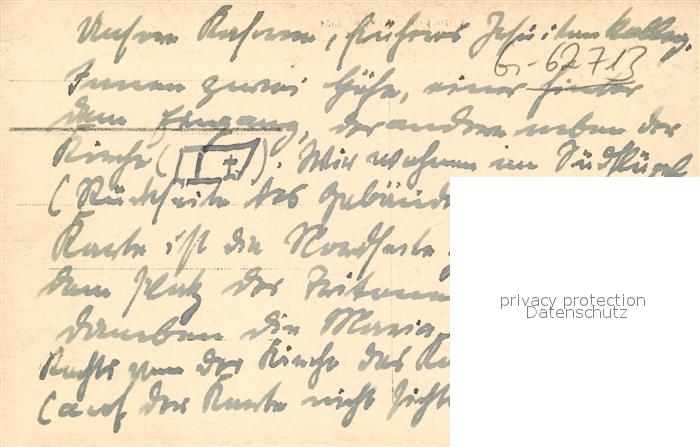 Unsere Kaserne, früheres Jesuitenkolleg,
6-62713
Innen zwei Höfe, einer hinter
dem Eingang, der andere neben der
Kirche ( ). Wir wohnen im Südflügel
(Rückseite des Gebäude
Karte ist die Nordseite
dem Platz der
daneben die Maria
Rechts von der Kirche das
(auf der Karte nicht sicht
privacy protection
Datenschutz